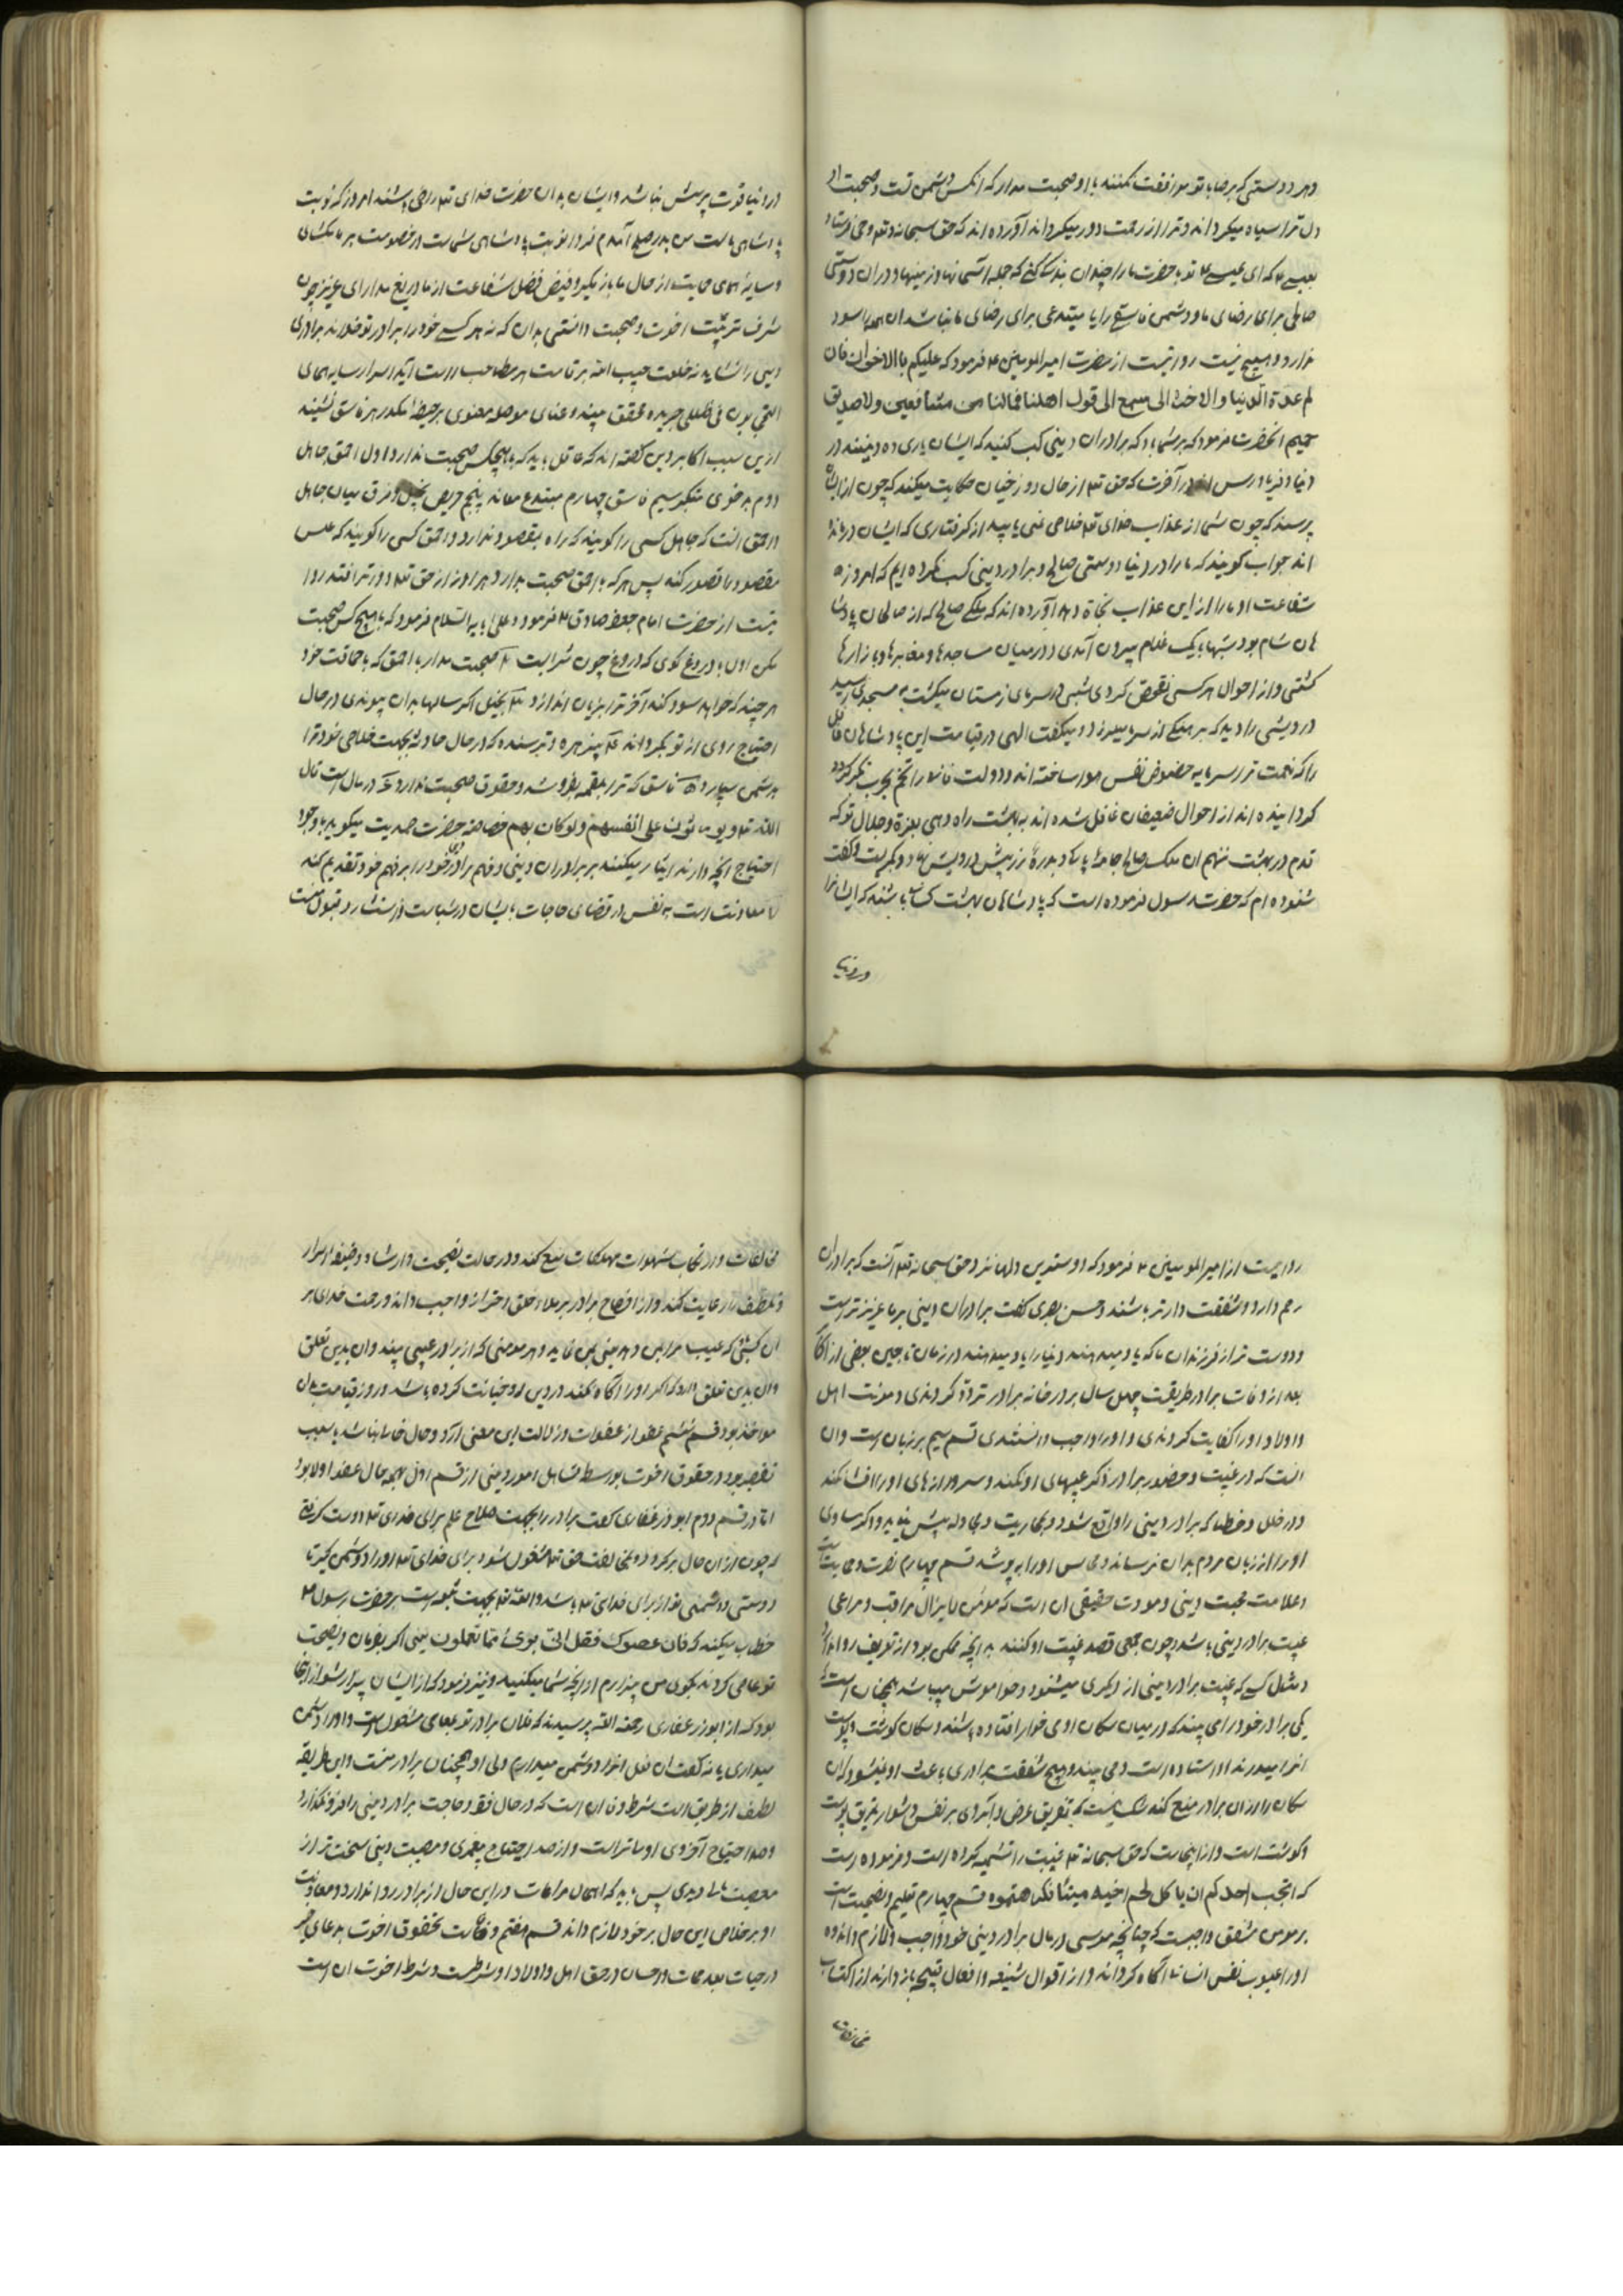 و هر دوستی که بر رضا با تو موافقت نکنند با او صحبت مدار که آنکس دشمن تست و صحبت او
دل ترا سیاه میکرداند و ترا از رحمت دور میکرداند آورده اند که حق سبحانه و تعه وحی فرستاد
بعیسی ع که ای عیسی تو با حضرت ما را چندان بندکی کنی که جمله آسمانها و زمینها و در آن دوستی
صالحی برای رضای ما و دشمن فاسق را یا مبتدعی برای رضای ما نباشد آن همه را سود
ندارد و هیچ نیست روایتست از حضرت امیر المومنین ع فرمود که علیکم باالاخوان فان
لم عدة الدنیا و الاخرة الی سمع الی قول اهلنا فمالنا من شافعین ولا صدیق
حمیم انحضرت فرمود که بر شما باد که برادران دینی کسب کنید که ایشان یاری ده و بنینند در
دنیا و فریاد رس اند در آخرت که حق تعه از حال دوزخیان حکایت میکند که چون از ایشان
پرسند که چون شما از عذاب خدای تعه خلاص نمی یابید از کرفتاری که ایشان درمانده
اند جواب کویند که ما را در دنیا دوستی صالح و برادر دینی کسب نکرده ایم که امروز ه
شفاعت او ما را از این عذاب نجاة دهد آورده اند که ملکی صالح که از صالحان پادشا
هان شام بود شبها با یک غلام بیرون آمدی و در میان مساجدها و مقابرها و بازارها
کشتی و از احوال هر کسی تفحص کردی شبی در سرمای زمستان میکشت به مسجدی رسید
درویشی را دید که برهنکی از سرما میلرزد و میکفت الهی در قیامت این پادشاهان غافل
را که نعمت ترا سرمایه حضوض نفس هوا ساخته اند و دولت فانی را
کردانیده اند از احوال ضعیفان غافل شده اند به بهشت راه دهی بعزة و جلال تو که
قدم در بهشت ننهم آن ملک صالح جامها پاک و بدره زر پیش درویش نهاد و بکریست و کفت
شنوده ام که حضرت رسول فرموده است که پادشاهان بهشت کسانی باشند که ایشانرا
در دنیا
در دنیا قوت پرسش نباشد و ایشان بدان حضرت خدای تعه راضی باشند امروز که نوبت
پادشاهی ماست من بدر صلح آمدم فردا نوبت پادشاهی شماست در خصومت بر ما مکشای
و سایه همای حمایت از حال ما باز نکیر و فیض فضل شفاعت از ما دریغ مدار ای عزیز چون
شرف تربیت اخوت و صحبت دانستی بدان که نه هر کسی خود را برادر تو خواند برادری
دینی را شاید نه خلعت حبیب الله بر قامت هر مصاحب راست آید
از این سبب اکابر دین کفته اند که عاقل باید که با پنج کس صحبت ندارد اول احمق جاهل
دوم بدخوی متکبر سیم فاسق چهارم مبتدع معاند پنجم حریص بخیل و فرق میان جاهل
و احمق آنست که جاهل کسی را کویند که راه بمقصود ندارد و احمق کسی را کویند که عکس
مقصود را تصور کند پس هر که با احمق صحبت بدارد هر روز از حق تعه دورتر افتد روا
یتست از حضرت امام جعفر صادق ع فرمود و علی ابایه السلام فرمود که با پنج کس صحبت
مکن اول با دروغ کوی که دروغ چون شرابست ۲ صحبت مدار با احمق که با حماقت خود
هر چند که خواهد سود کند آخر ترا بزیان اندازد ۳ بخیل اکر سالها بدان پیوندی در حال
احتیاج روی از تو بکرداند ۴ بی زهره و ترسنده که در حال حادثه بجهت خلاصی خود ترا
بدشمن سپارد ۵ فاسق که ترا بلقمه بفروشد و حقوق صحبت ندارد در مال است قال
الله تعه و یوماثون علی انفسهم ولو کان بهم خصاصة حضرت صمدیت میکوید با وجود
احتیاج انچه دارند ایثار میکنند بر برادران دینی و فهم برادر خود را بر فهم خود تقدیم کند
معاونت است به نفس در قضای حاجات ایشان در شباست و استبشار و قبول منت
روایت از امیر المومنین ع فرمود که دوسترین دلها نزد حق سبحانه تعه آنست که برادران
رحم دارد و شفقت دارتر باشند و حسن بصری کفت برادران دینی بر ما عزیزترست
و دوست تر از فرزندان ما که یاد میدهند دنیا را یاد میدهند در زمان تابعین بعضی از اکا
بعد از وفات برادر طریقت چهل سال بر در خانه برادر تردد کردندی و مونت اهل
و اولاد او را کفایت کردندی و او را واجب دانستندی قسم سیم بر زبان است و آن
آنست که در غیبت و حضور برادر ذکر عیبهای او نکند و سر و رازهای او را افشا نکند
و در خلل و خطا که برادر دینی را واقع شود و بمحاربت و مجادله پیش نیاید و اکر مساوی
او را از زبان مردم بدان نرساند و محاسن او را نپوشد قسم چهارم نصرت و حمایت
و علامت محبت دینی و مودت حقیقی آن است که مومن لا یزال مراقب و مراعی
غیبت برادر دینی باشد و چون جمعی قصد غیبت او کنند به انچه ممکن بود از تعریف روا ندارد
و مثل کسی که غیبت برادر دینی از دیکری میشنود و خاموش میباشد همچنان است
یکی برادر خود را می بیند که در میان سکان ادمی خوار افتاده باشند و سکان کوشت و پوست
انرا میدرند او استاده است و می بیند و هیچ شفقت برادری باعث او نمیشود که آن
سکان را از آن برادر منع کند شک نیست که تفریق عرض و آبروی بر نفس دشوارتر از تفریق پوست
و کوشت است و از اینجاست که حق سبحانه تعه غیبت را تشبیه کرده است و فرموده است
که ایحب احدکم ان یاکل لحم اخیه میتا فکرهتموه قسم چهارم تعلیم و نصیحت است
بر مومن مشفق واجبست که چنانچه مواسی در مال برادر دینی خود واجب و لازم داند ه
او را بعیوب نفس انسانها اکاه کرداند و از اقوال شنیعه و افعال قبیحه باز دارند از اکتساب
مخالفات
مخالفات و ارتکاب شهوات مهلکات منع کند و در حالت نصیحت و ارشاد وظیفه اسرار
و تلطف را رعایت کند و از افضاح برادر بر ملاء خلق احتراز واجب داند و رحمت خدای بر
آن کسی که عیب مرا بمن دهد یعنی بمن نماید و هر مومنی که از برادر عیبی بیند و آن بدین تعلق
و آن بدین تعلق دارد که اکر او را اکاه نکند در دین او خیانت کرده باشد و روز قیامت بدان
مواخذ بود قسم ششم عفو از هفوات و زلالت این معنی
تقصیر بود در حقوق اخوت بواسطه تساهل امور دینی از قسم اول بهمه حال عفو اولا بود
اما در قسم دوم ابوذر غفاری کفت برادر را بجهت صلاح علم برای خدای تعه دوست کرفته
که چون از آن حال بر کردد و بمخالفت حق تعه مشغول شود برای خدای تعه او را دشمن کیر تا
دوستی و دشمنی تو از برای خدای تعه باشد
خطاب میکند که فان عصوک فقل انی بریء مما تعملون یعنی اکر بفرمان و نصیحت
تو عاصی کردند بکوی من بیزارم از انچه شما میکنید و نیز فرمود که از ایشان بیزار شو
بود که از ابوذر غفاری رحمه الله پرسیدند که فلان برادر تو بمعاصی مشغول است و او را دشمن
میداری یا نه کفت آن فعل او را دشمن میدارم ولی او همچنان برادر منست و این طریقه
لطف از طریق است شرط وفا آن است که در حال فقر و حاجت برادر دینی را فرو نکذارد
و صد احتیاج آخروی او ماتر است و از صد احتیاج و مصیبت دینی سختتر از
مصیبت پس باید که اهمال مراعات در این حال از برادر روا ندارد و معاونت
او بر خلاص این حال بر خود لازم داند قسم هفتم وفاست بحقوق اخوت بدعای خیر
در حیات بعد ممات و احسان در حق اهل و اولاد او شرطست و شرط اخوت آن است